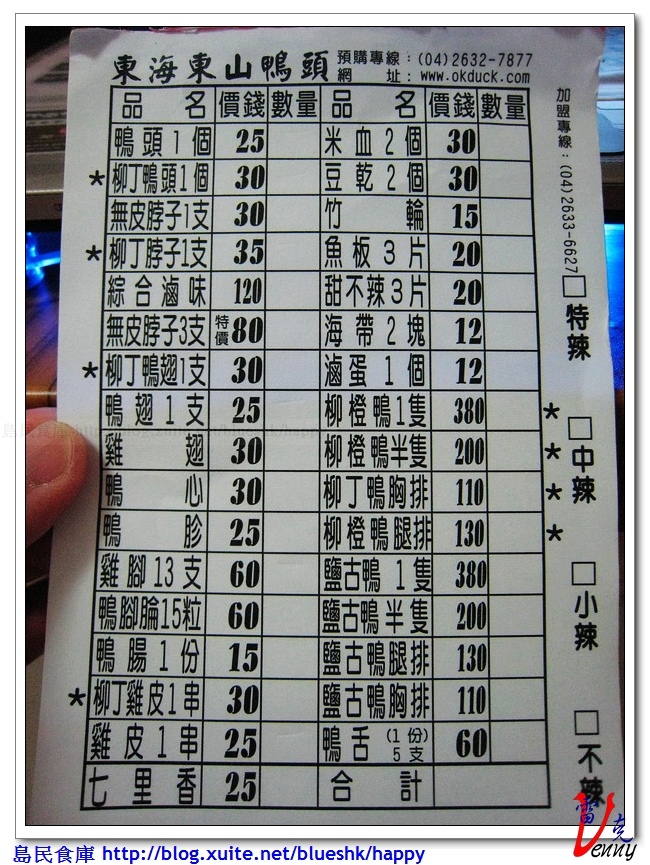 東海東山鴨頭
預購專線：(04)2632-7877
網 址：www.okduck.com
品 名 價錢 數量 品 名 價錢 數量
鴨頭1個 25 米血2個 30
* 柳丁鴨頭1個 30 豆乾2個 30
無皮脖子1支 30 竹輪 15
* 柳丁脖子1支 35 魚板3片 20
綜合滷味 120 甜不辣3片 20
無皮脖子3支 特價80 海帶2塊 12
* 柳丁鴨翅1支 30 滷蛋1個 12
鴨翅1支 25 柳橙鴨1隻 380 *
雞翅 30 柳橙鴨半隻 200 *
鴨心 30 柳丁鴨胸排 110 *
鴨胗 25 柳橙鴨腿排 130 *
雞腳13支 60 鹽古鴨1隻 380
鴨腳腀15粒 60 鹽古鴨半隻 200
鴨腸1份 15 鹽古鴨腿排 130
* 柳丁雞皮1串 30 鹽古鴨胸排 110
雞皮1串 25 鴨舌(1份)5支 60
七里香 25 合計
加盟專線：(04)2633-6627
□特辣
□中辣
□小辣
□不辣
島民食庫 http://blog.xuite.net/blueshk/happy
雷克
Venny
島民食庫 http://blog.xuite.net/blueshk/happy